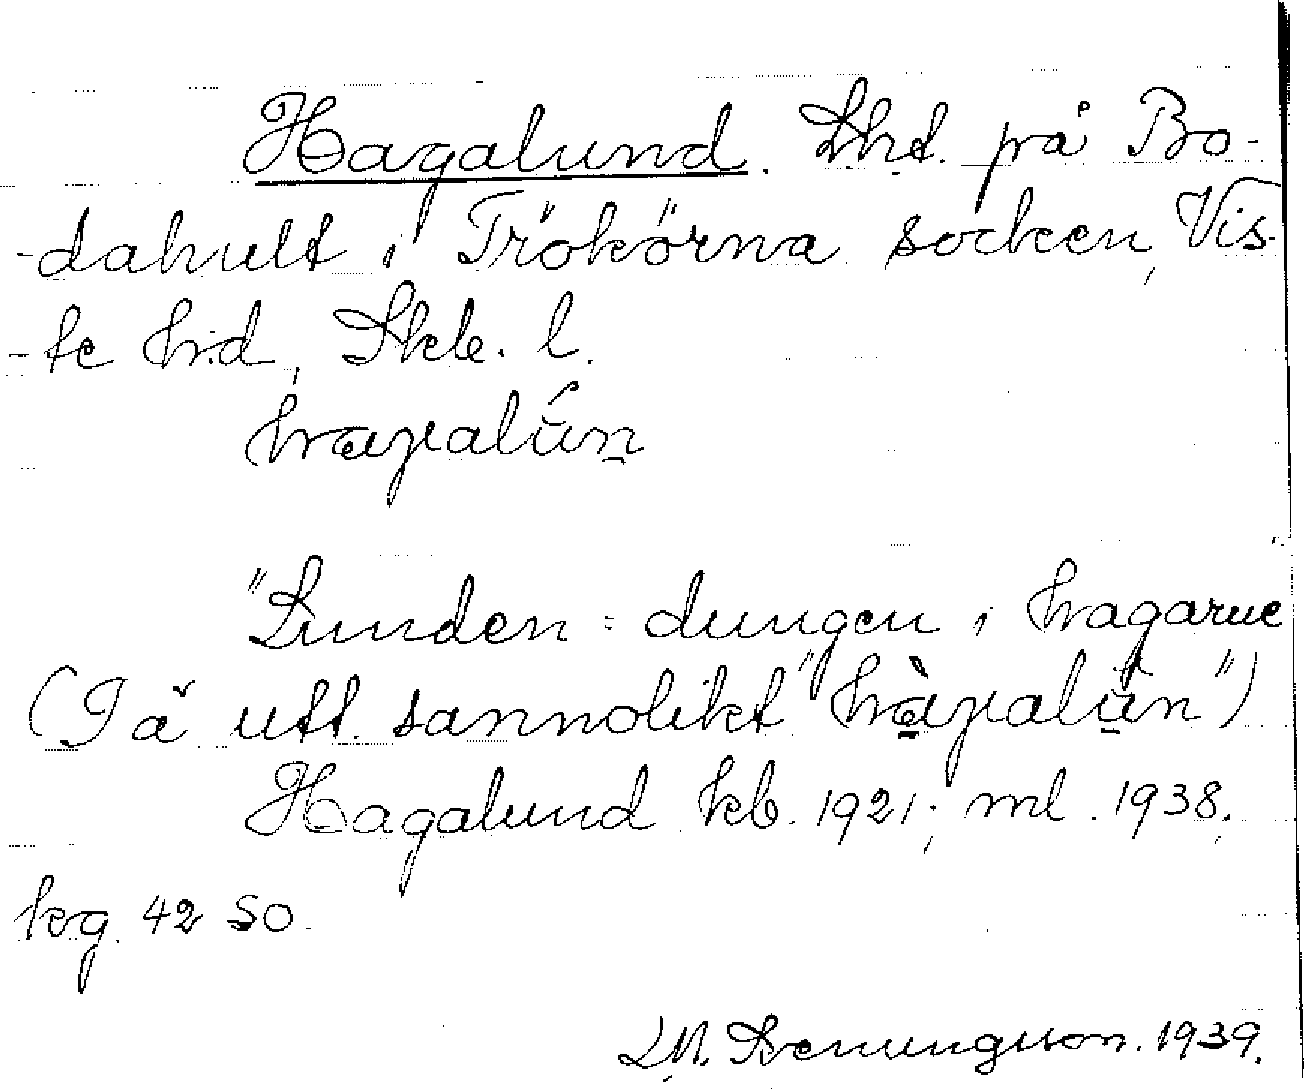 Hagalund. Lht. på Bo-
-dahult i Trökörna socken, Vis-
-te hrd, Skb. l.
haɡalún
"Lunden = dungen i hagarne
(I ä utt. sannolikt "hàɡalun")
Hagalund kb. 1921; ml. 1938.
krg. 42 SO
1939.